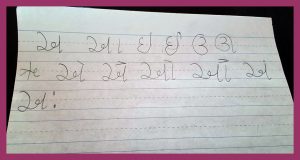 અ આ ઇ ઈ ઉ ઊ
ઋ એ ઐ ઓ ઔ અં
અઃ